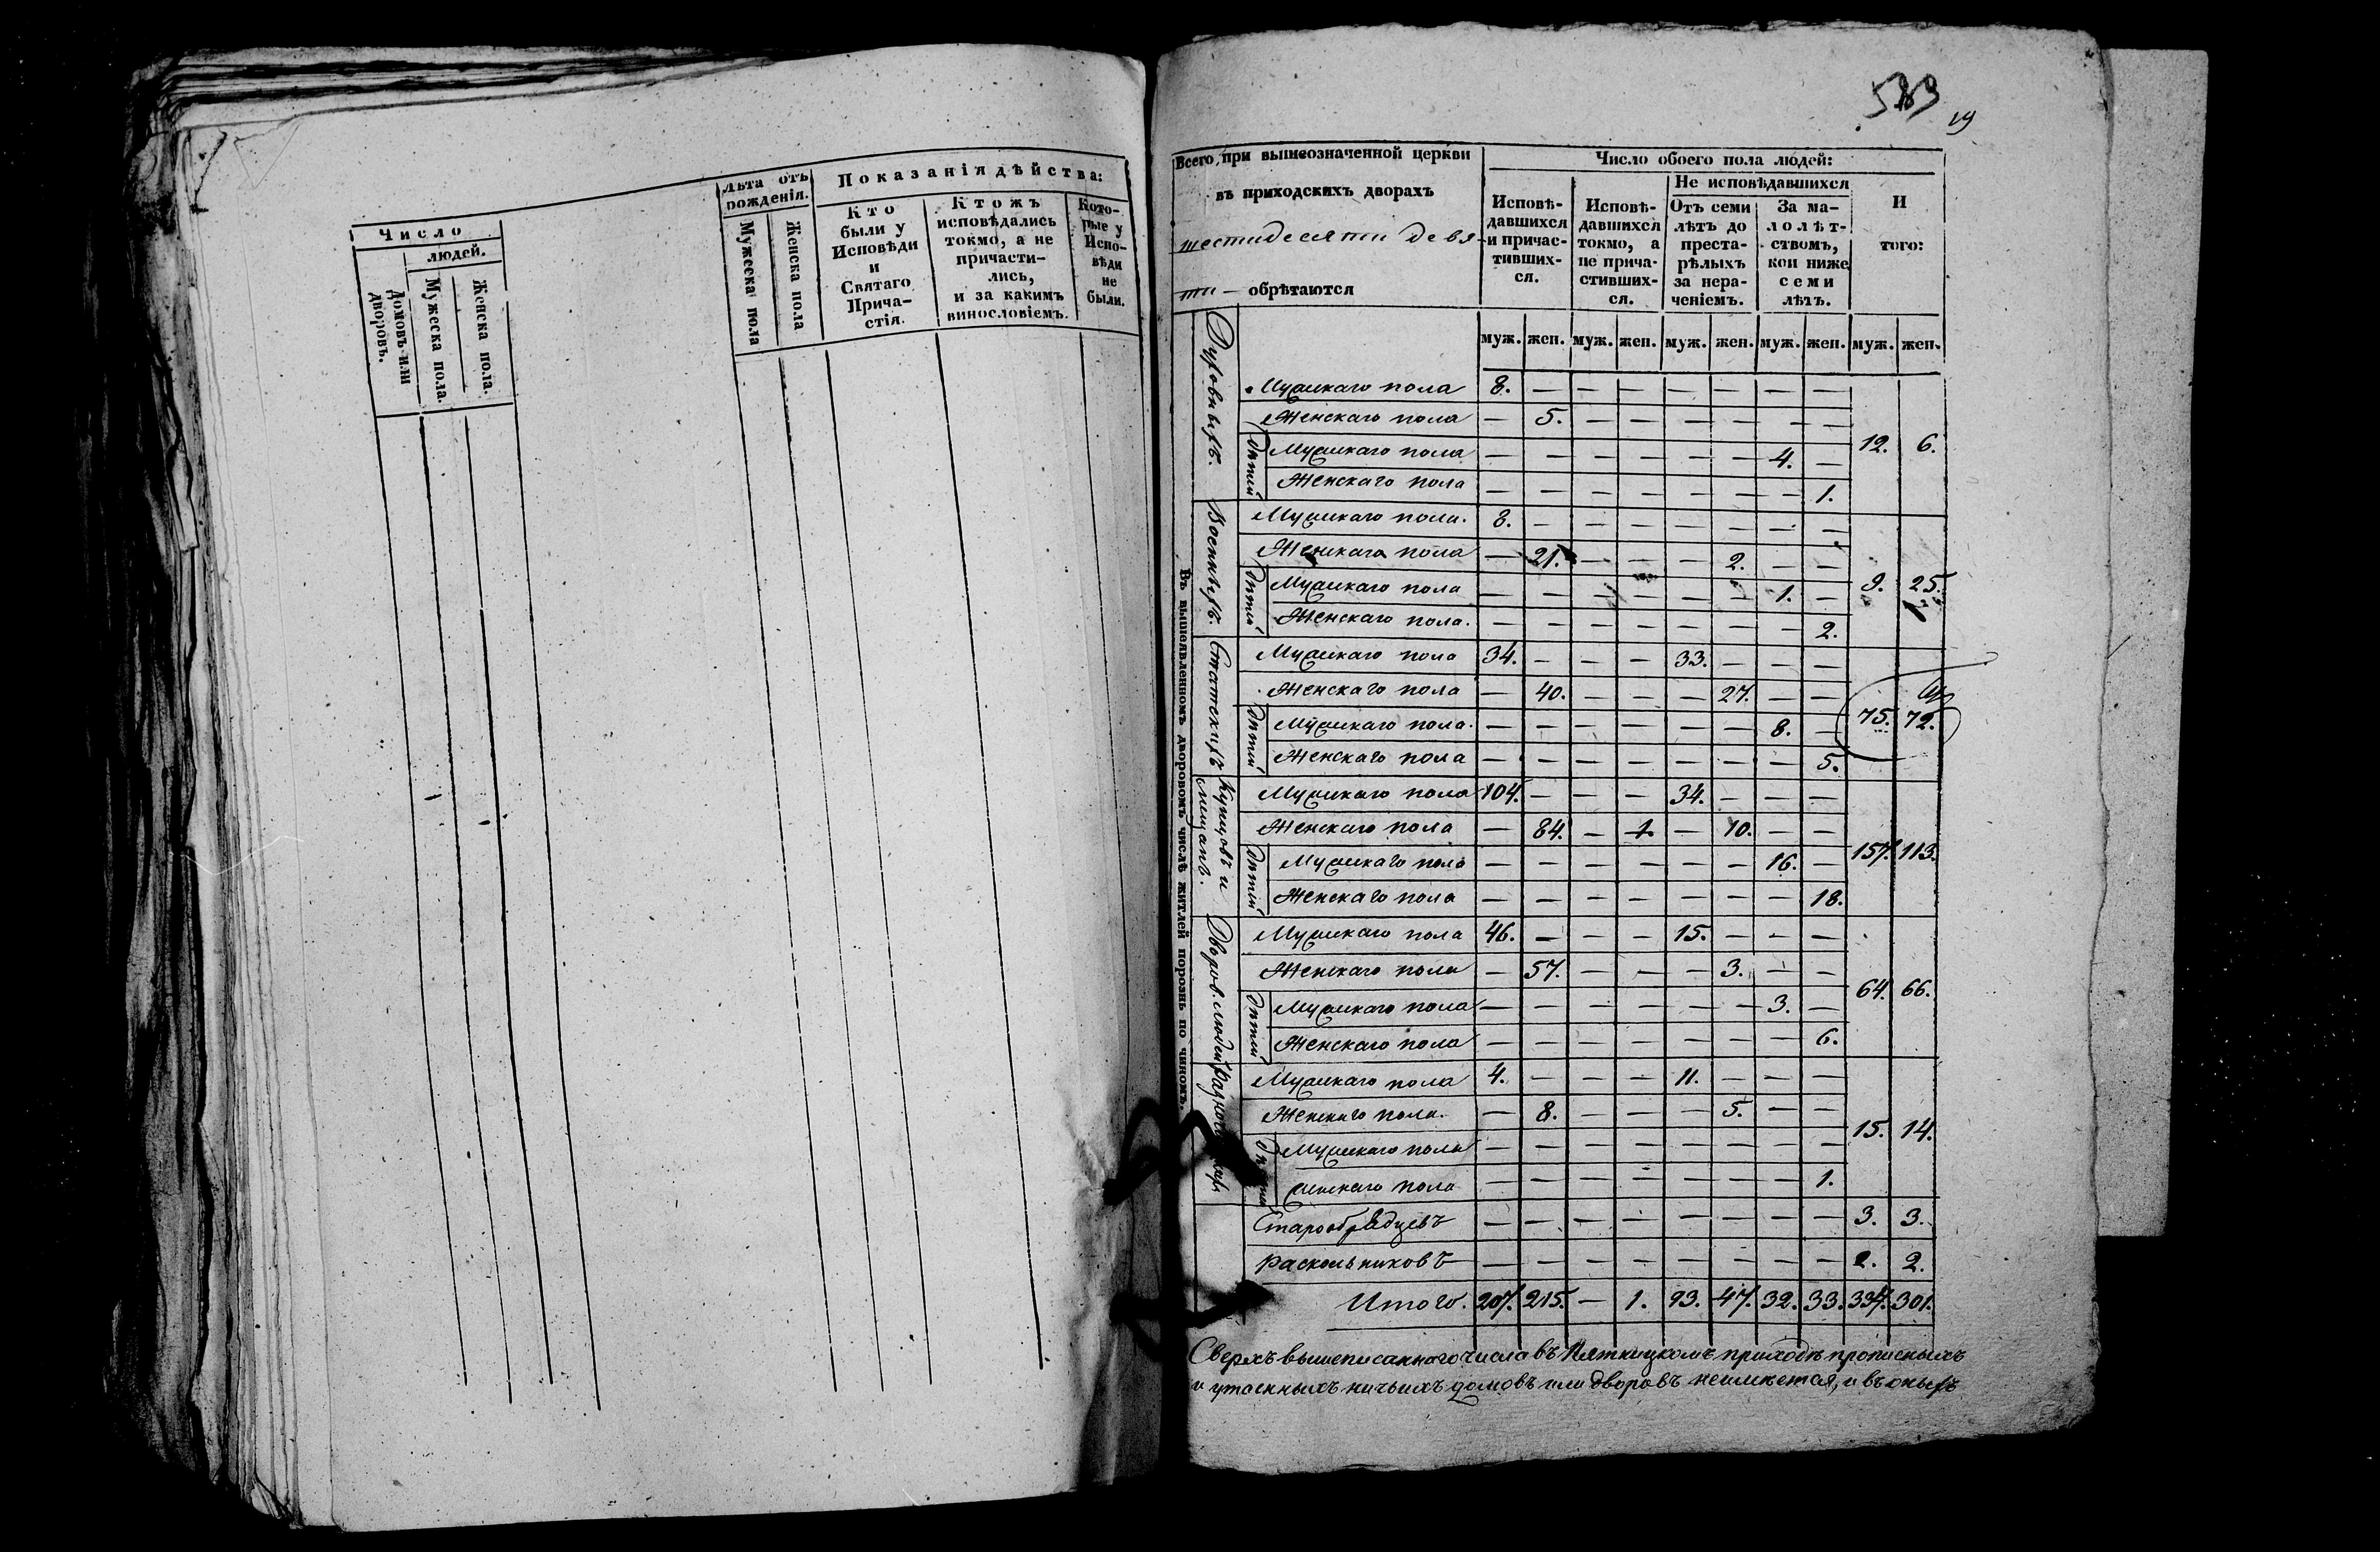 Число
людей.
Домовъ или дворовъ.
Мужеска пола.
Женска пола.
Лѣта отъ рожденія.
Мужеска пола
Женска пола
Показанія дѣйства:
Кто
были у
Исповѣди
и
Святаго
Прича-
стія.
Ктожъ
исповѣдались
токмо, а не
причасти-
лись,
и за какимъ
винословіемъ.
Кото-
рые у
Испо-
вѣди
не
были.
19
Всего, при вышеозначенной церкви
въ приходскихъ дворахъ
шестидесяти девя-
ти — обрѣтаются
Число обоего пола людей:
Исповѣ-
давшихся
и причас-
тивших-
ся.
Исповѣ-
давшихся
токмо, а
не прича-
стивших-
ся.
Не исповѣдавшихся
Отъ семи
лѣтъ до
преста-
рѣлыхъ
за нера-
ченіемъ.
За ма-
лолѣт-
ствомъ,
кои ниже
семи
лѣтъ.
И
того:
муж. жен. муж. жен. муж. жен. муж. жен. муж. жен.
Въ вышеявленномъ дворовомъ числѣ житлей порознь по чиномъ.
Духовныхъ.
Мужскаго пола 8. — — — — — — —
Женскаго пола — 5. — — — — — —
Дѣтей
Мужскаго пола — — — — — — 4. —
Женскаго пола — — — — — — — 1.
12. 6.
Военныхъ.
Мужскаго пола. 8. — — — — — — —
Женскаго пола — 21. — — — 2. — —
Дѣтей
Мужскаго пола — — — — — — 1. —
Женскаго пола. — — — — — — — 2.
9. 25.
Статскихъ
Мужскаго пола 34. — — — 33. — — —
Женскаго пола — 40. — — — 27. — —
Дѣтей
Мужскаго пола. — — — — — — 8. —
Женскаго пола — — — — — — — 5.
75. 72.
Купцовъ и мещанъ.
Мужскаго пола 104. — — — 34. — — —
Женскаго пола — 84. — 1. — 10. — —
Дѣтей
Мужскаго пола — — — — — — 16. —
Женскаго пола — — — — — — — 18.
157. 113.
Дворов. людей
Мужскаго пола 46. — — — 15. — — —
Женскаго пола — 57. — — — 3. — —
Дѣтей
Мужскаго пола — — — — — — 3. —
Женскаго пола — — — — — — — 6.
64. 66.
Мужскаго пола 4. — — — 11. — — —
Женскаго пола. — 8. — — — 5. — —
Мужскаго пола — — — — — — — —
пола — — — — — — — 1.
15. 14.
Старообрядцевъ — — — — — — — — 3. 3.
Раскольниковъ — — — — — — — — 2. 2.
Итого. 207. 215. — 1. 93. 47. 32. 33. 337. 301.
Сверхъ вышеписаннаго числа въ Пятницкомъ приходѣ прописныхъ
и утаенныхъ ничьихъ домовъ или дворовъ неимѣется, и въ оныхъ